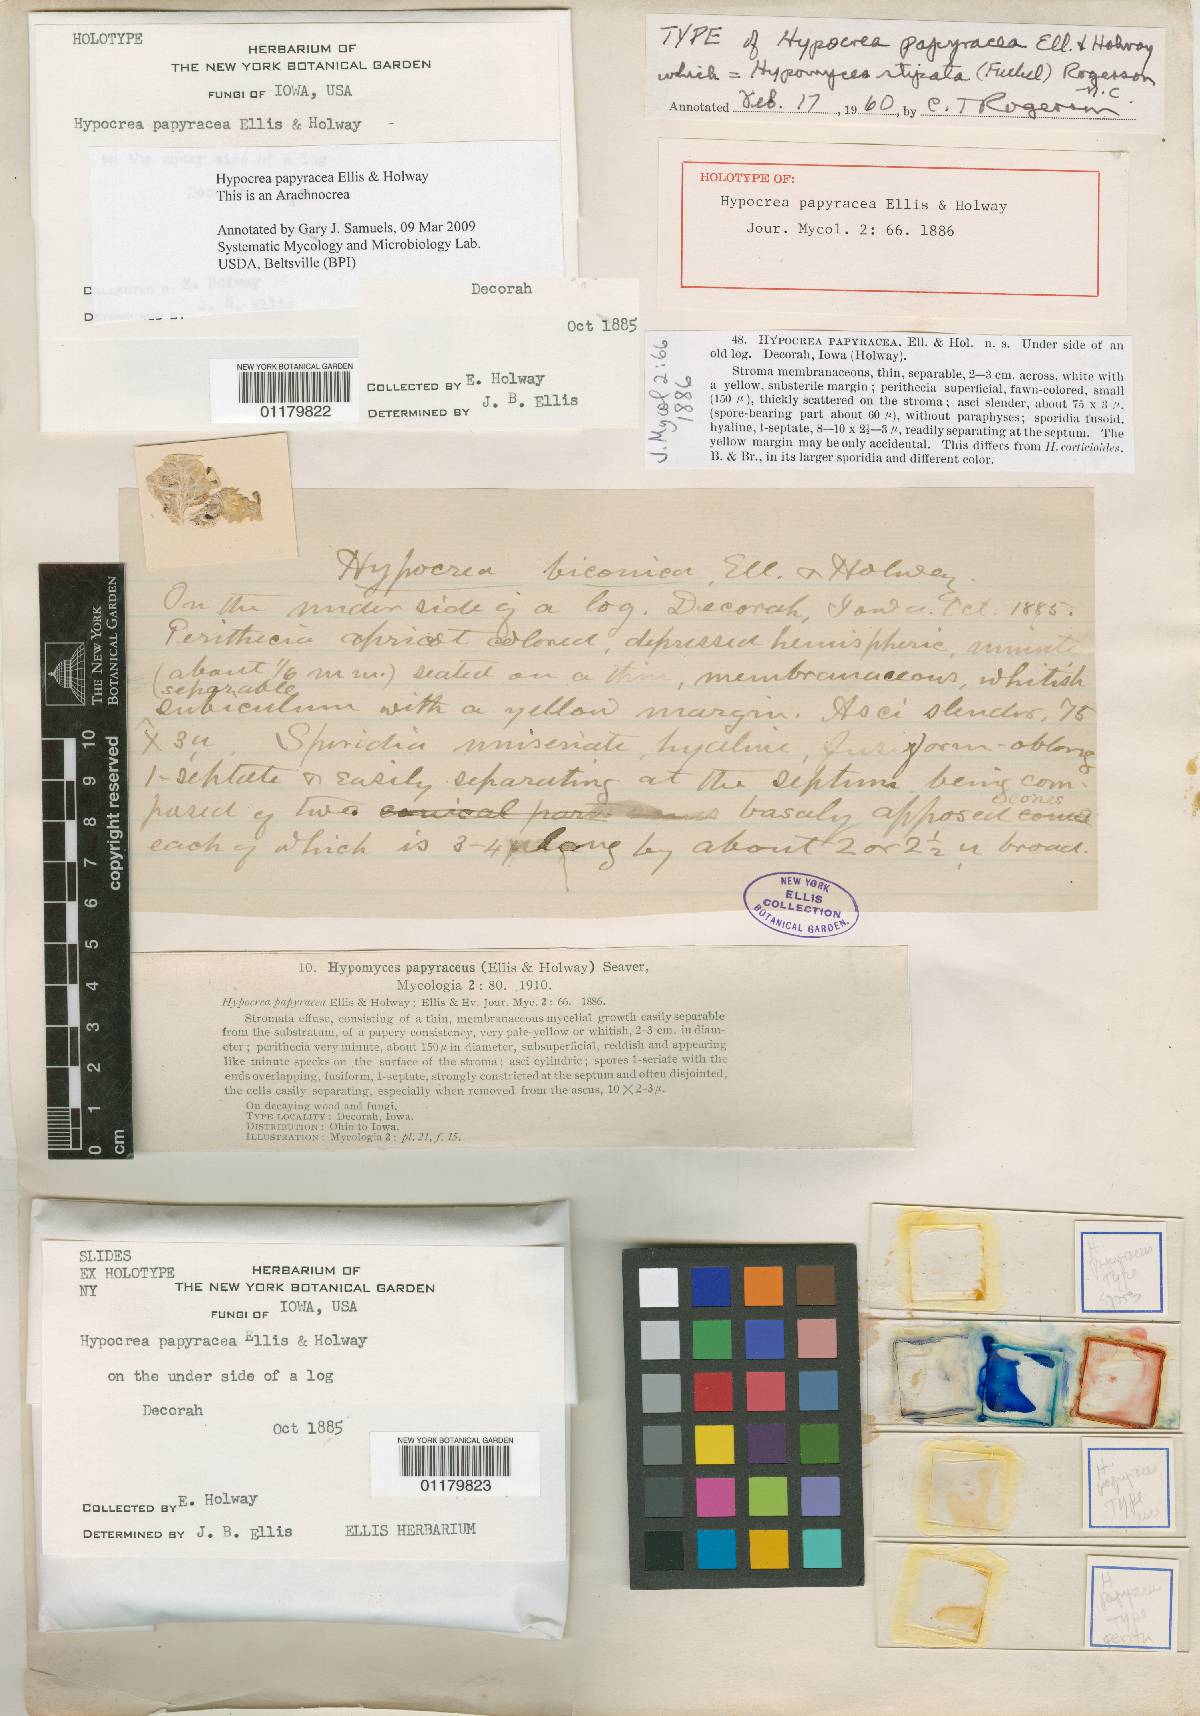 HOLOTYPE
HERBARIUM OF
THE NEW YORK BOTANICAL GARDEN
FUNGI OF IOWA, USA
Hypocrea papyracea Ellis & Holway -
on the under side of a log
Hypocrea papyracea Ellis & Holway
This is an Arachnocrea
Annotated by Gary J. Samuels, 09 Mar 2009
Systematic Mycology and Microbiology Lab.
USDA, Beltsville (BPI)
Decorah
Oct 1885
NEW YORK BOTANICAL GARDEN
01179822
COLLECTED BY E. Holway
DETERMINED BY J. B. Ellis
TYPE of Hypocrea papyracea Ell. & Holway
which = Hypomyces stipata (Fuckel) Rogerson
n.c.
Annotated Feb. 17, 1960, by C. T. Rogerson
HOLOTYPE OF:
Hypocrea papyracea Ellis & Holway
Jour. Mycol. 2: 66. 1886
J. Mycol 2:66
1886
48. HYPOCREA PAPYRACEA, Ell. & Hol. n. s. Under side of an
old log. Decorah, Iowa (Holway).
Stroma membranaceous, thin, separable, 2—3 cm. across, white with
a yellow, substerile margin; perithecia superficial, fawn-colored, small
(150 µ), thickly scattered on the stroma; asci slender, about 75 x 3 µ,
(spore-bearing part about 60 µ), without paraphyses; sporidia fusoid,
hyaline, 1-septate, 8—10 x 2½—3 µ, readily separating at the septum. The
yellow margin may be only accidental. This differs from H. corticioides,
B. & Br., in its larger sporidia and different color.
Hypocrea biconica, Ell. & Holway.
On the under side of a log. Decorah, Iowa. Oct. 1885.
Perithecia apricot colored, depressed hemispheric, minute
(about 1/6 mm.) seated on a thin, membranaceous, whitish
separable
subiculum with a yellow margin. Asci slender, 75
x 3 µ. Sporidia uniseriate, hyaline, fusiform-oblong
1-septate & easily separating at the septum being com-
posed of two conical parts basaly apposed cones
each of which is 3-4 µ long by about 2 or 2½ µ broad.
NEW YORK
ELLIS
COLLECTION
BOTANICAL GARDEN.
THE NEW YORK
BOTANICAL GARDEN
copyright reserved
10
9
8
7
6
5
4
3
2
1
0
cm
10. Hypomyces papyraceus (Ellis & Holway) Seaver,
Mycologia 2: 80. 1910.
Hypocrea papyracea Ellis & Holway; Ellis & Ev. Jour. Myc. 2: 66. 1886.
Stromata effuse, consisting of a thin, membranaceous mycelial growth easily separable
from the substratum, of a papery consistency, very pale-yellow or whitish, 2-3 cm. in diam-
eter; perithecia very minute, about 150 µ in diameter, subsuperficial, reddish and appearing
like minute specks on the surface of the stroma; asci cylindric; spores 1-seriate with the
ends overlapping, fusiform, 1-septate, strongly constricted at the septum and often disjointed,
the cells easily separating, especially when removed from the ascus, 10 × 2-3 µ.
On decaying wood and fungi.
TYPE LOCALITY: Decorah, Iowa.
DISTRIBUTION: Ohio to Iowa.
ILLUSTRATION: Mycologia 2: pl. 21, f. 15.
SLIDES
EX HOLOTYPE
NY
HERBARIUM OF
THE NEW YORK BOTANICAL GARDEN
FUNGI OF IOWA, USA
Hypocrea papyracea Ellis & Holway
on the under side of a log
Decorah
Oct 1885
NEW YORK BOTANICAL GARDEN
01179823
COLLECTED BY E. Holway
DETERMINED BY J. B. Ellis
ELLIS HERBARIUM
H.
papyracea
Type
H.
papyracea
Type
H
papyracea
Type